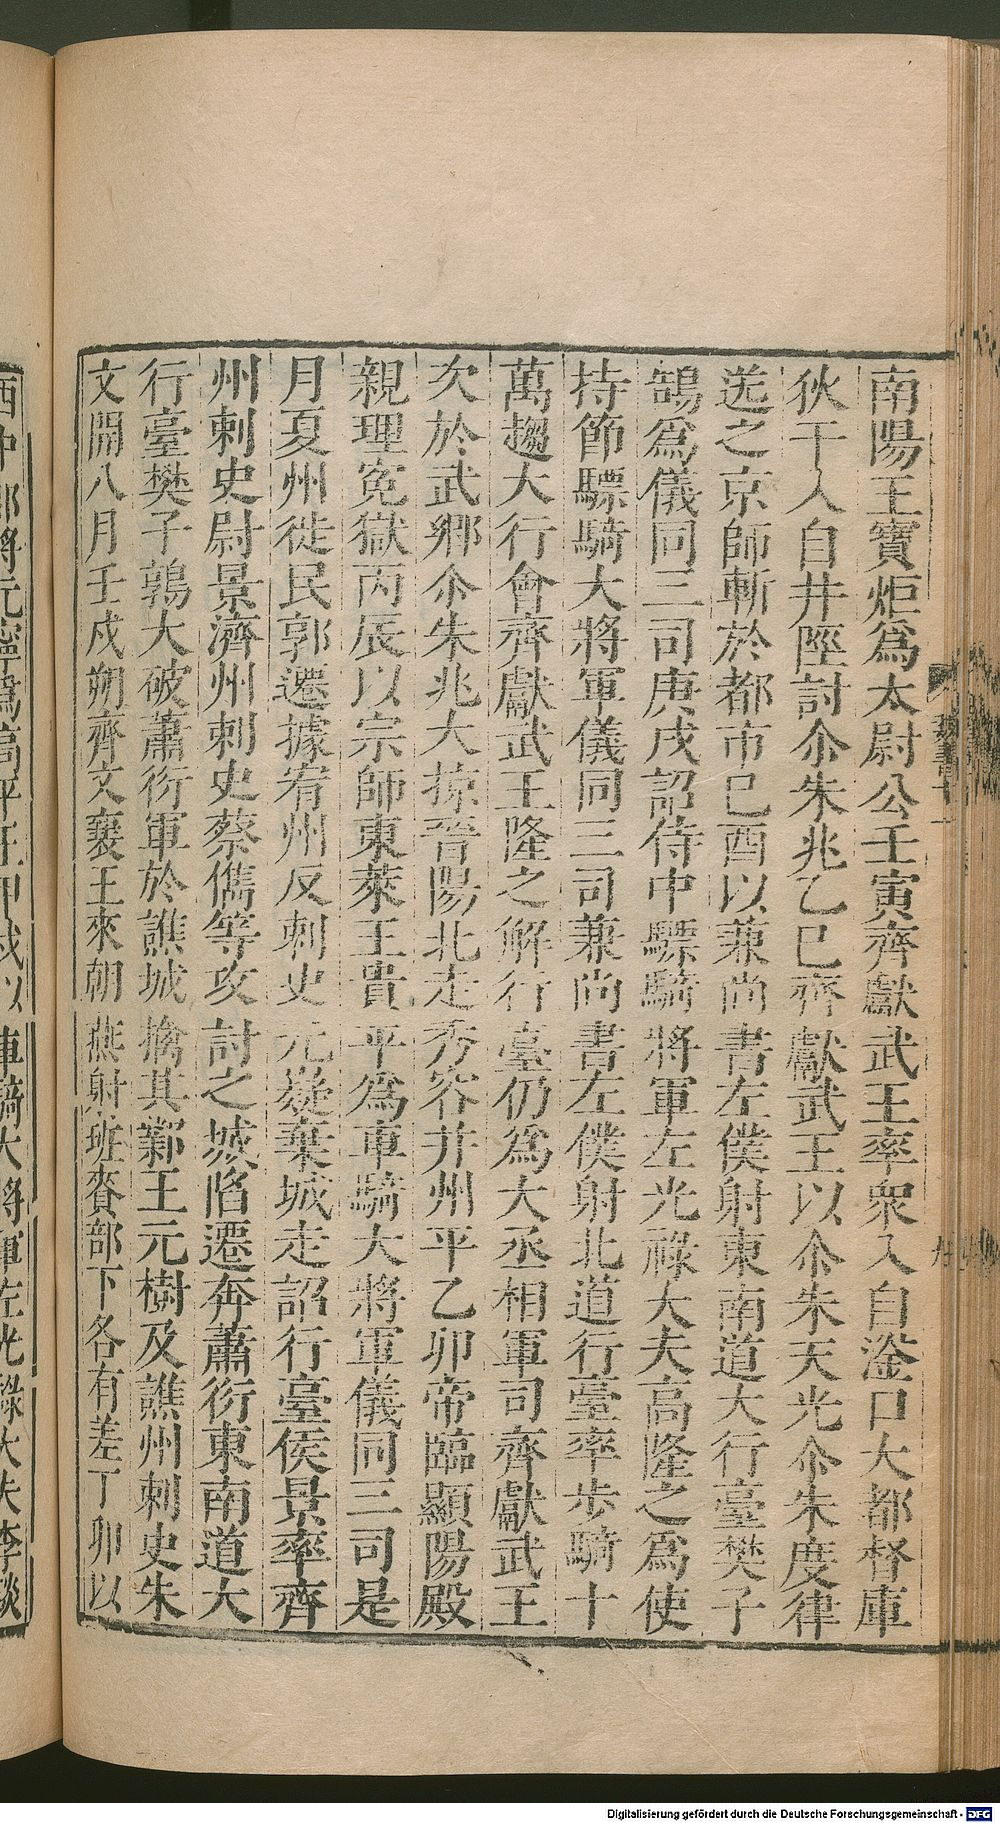 南陽王寶炬爲太尉公壬寅齊獻武王率衆入自滏口大都督庫
狄干入自井陘討尒朱兆乙巳齊獻武王以尒朱天光尒朱度律
送之京師斬於都市已酉以兼尚書左僕射東南道大行臺樊子
鵠爲儀同三司庚戌詔侍中驃騎將軍左光祿大夫高隆之爲使
持節驃騎大將軍儀同三司兼尚書左僕射北道行臺率步騎十
萬趨大行會齊獻武王隆之解行臺仍爲大丞相軍司齊獻武王
次於武鄉尒朱兆大掠晉陽北走秀容并州平乙卯帝臨顯陽殿
親理寃獄丙辰以宗師東萊王貴平爲車騎大將軍儀同三司是
月夏州徙民郭遷據宥州反刺史元嶷棄城走詔行臺侯景率齊
州刺史尉景濟州刺史蔡儁等攻討之城陷遷奔蕭衍東南道大
行臺樊子鵠大破蕭衍軍於譙城擒其鄴王元樹及譙州刺史朱
文開八月壬戌朔齊文襄王來朝燕射班賚部下各有差丁卯以
西中郎將元寧爲高平王甲戌以車騎大將軍左光祿大夫李琰
魏書十一
Digitalisierung gefördert durch die Deutsche Forschungsgemeinschaft - DFG